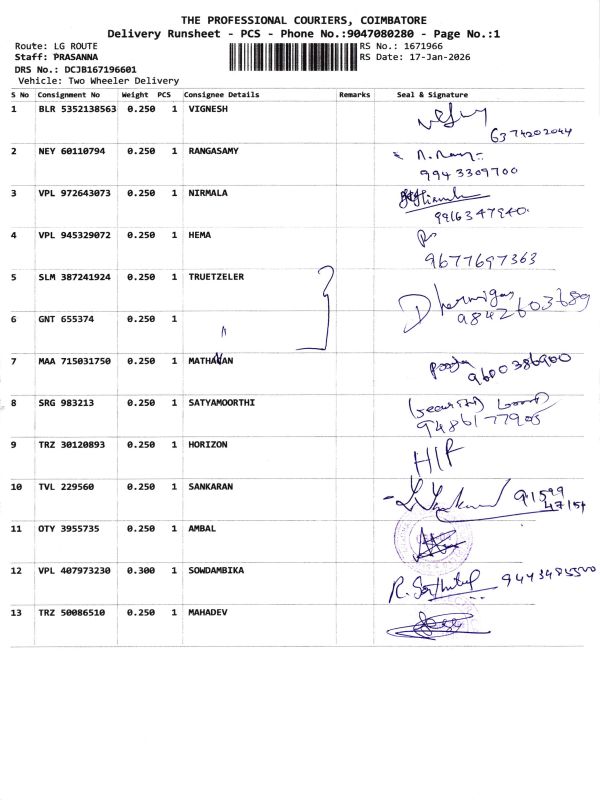 THE PROFESSIONAL COURIERS, COIMBATORE
Delivery Runsheet - PCS - Phone No.:9047080280 - Page No.:1
Route: LG ROUTE RS No.: 1671966
Staff: PRASANNA RS Date: 17-Jan-2026
DRS No.: DCJB167196601
Vehicle: Two Wheeler Delivery
S No Consignment No Weight PCS Consignee Details Remarks Seal & Signature
1 BLR 5352138563 0.250 1 VIGNESH
6374202044
2 NEY 60110794 0.250 1 RANGASAMY
9943309700
3 VPL 972643073 0.250 1 NIRMALA
9916347940
4 VPL 945329072 0.250 1 HEMA
9677697363
5 SLM 387241924 0.250 1 TRUETZELER
9842603789
6 GNT 655374 0.250 1
7 MAA 715031750 0.250 1 MATHAVAN pooja
9600386900
8 SRG 983213 0.250 1 SATYAMOORTHI (security)
9486177905
9 TRZ 30120893 0.250 1 HORIZON
HIF
10 TVL 229560 0.250 1 SANKARAN 91599
47154
11 OTY 3955735 0.250 1 AMBAL
12 VPL 407973230 0.300 1 SOWDAMBIKA
13 TRZ 50086510 0.250 1 MAHADEV